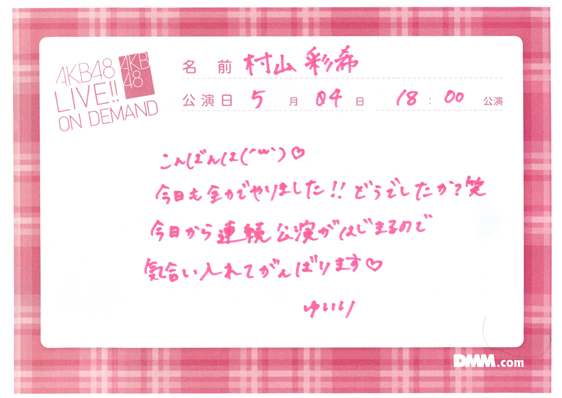 AKB48
LIVE!!
ON DEMAND
AKB
48
名前 村山 彩希
公演日 5月04日 18:00 公演
こんばんは(´꒳`)♡
今日も全力でやりました!!どうでしたか?笑
今日から連続公演がはじまるので
気合い入れてがんばります♡
ゆいり
DMM.com